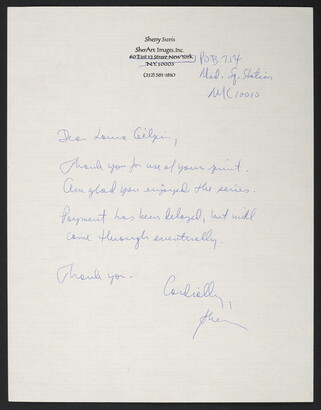 Sherry Suris
SherArt Images, Inc.
60 East 13 Street New York
N.Y. 10003
POB 714
Mad. Sq. Station
NYC 10010
Dear Laura Gilpin,
Thank you for use of your print.
Am glad you enjoyed the series.
Payment has been delayed, but will
come through eventually.
Thank you.
Cordially,
Sher